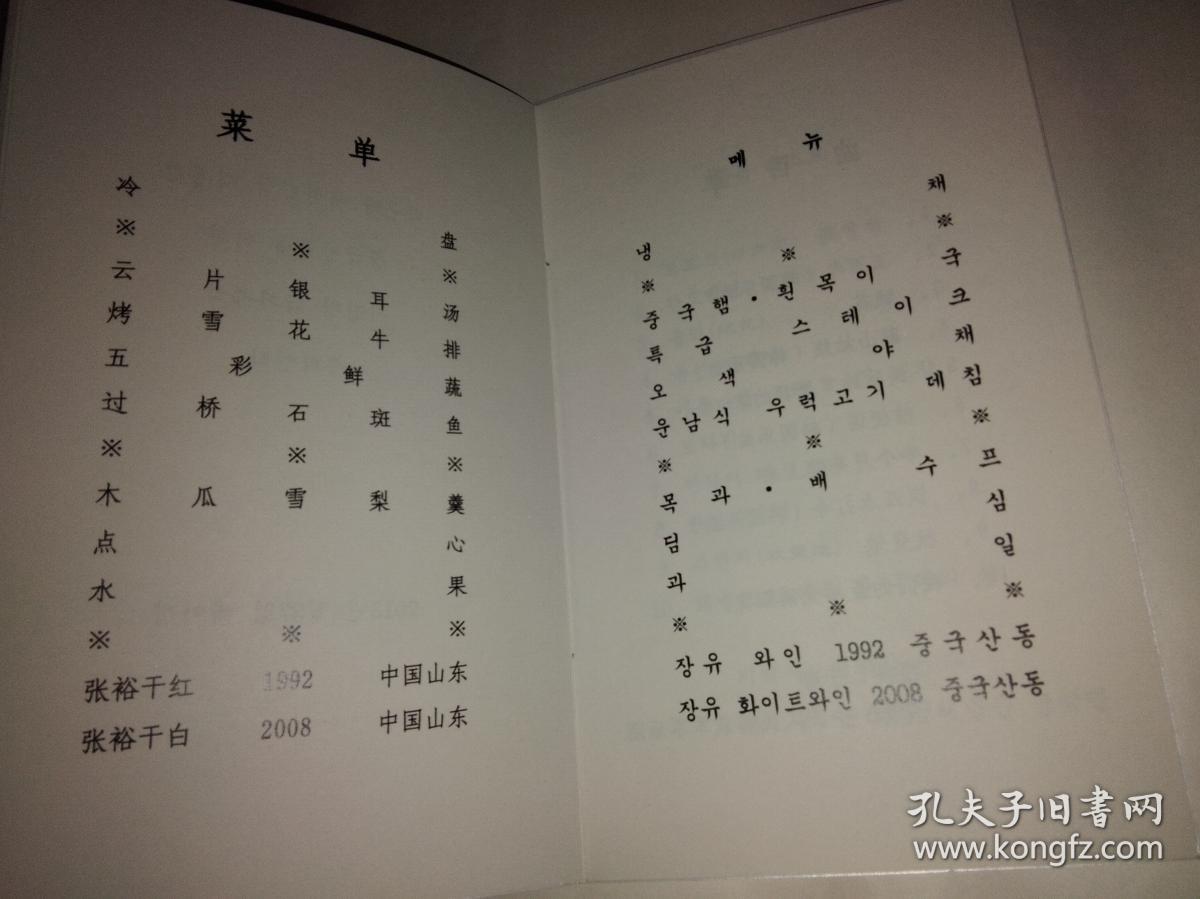 菜单
冷盘
※ ※ ※
云片银耳汤
烤雪花牛排
五彩鲜蔬
过桥石斑鱼
※ ※ ※
木瓜雪梨羹
点心
水果
※ ※ ※
张裕干红 1992 中国山东
张裕干白 2008 中国山东
메뉴
냉채
※ ※ ※
중국햄·흰목이국
특급 스테이크
오색야채
운남식 우럭고기 데침
※ ※ ※
목과·배 수프
딤심
과일
※ ※ ※
장유 와인 1992 중국산동
장유 화이트와인 2008 중국산동
孔夫子旧书网
www.kongfz.com